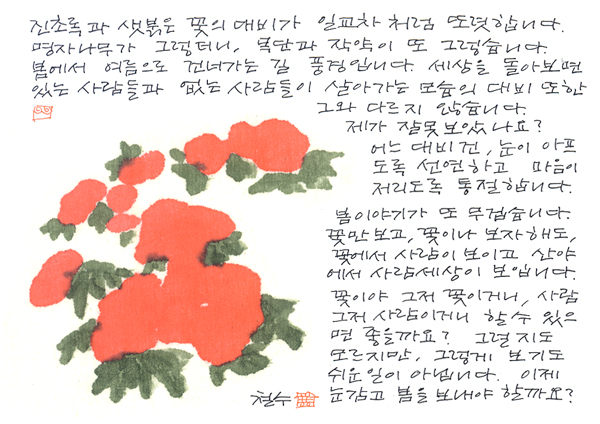 진초록과 샛붉은 꽃의 대비가 일교차처럼 또렷합니다.
명자나무가 그렇더니, 목단과 작약이 또 그렇습니다.
봄에서 여름으로 건너가는 길 풍경입니다. 세상을 돌아보면
있는 사람들과 없는 사람들이 살아가는 모습의 대비 또한
그와 다르지 않습니다.
제가 잘못 보았나요?
어느 대비건, 눈이 아프
도록 선연하고 마음이
저리도록 통절합니다.
봄이야기가 또 무겁습니다.
꽃만 보고, 꽃이나 보자 해도,
꽃에서 사람이 보이고 산야
에서 사람세상이 보입니다.
꽃이야 그저 꽃이거니, 사람
그저 사람이거니 할 수 있으
면 좋을까요? 그럴지도
모르지만, 그렇게 보기도
쉬운 일이 아닙니다. 이제
눈감고 봄을 보내야 할까요?
철수